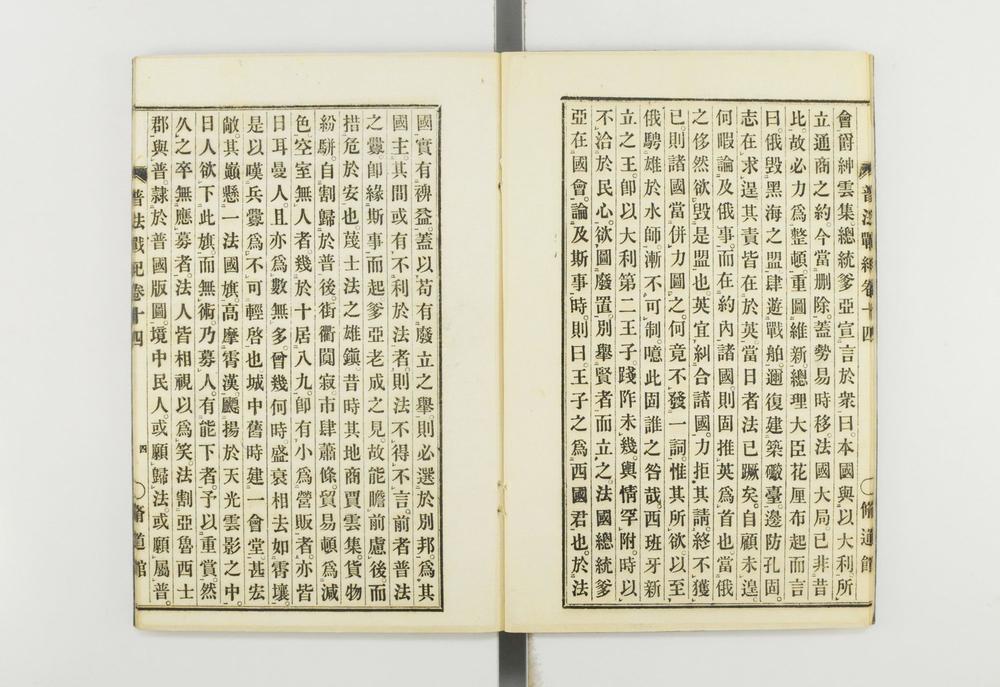 會爵紳雲集總統爹亞宣言於衆曰本國與以大利所
立通商之約今當删除蓋勢易時移法國大局已非昔
比故必力爲整頓重圖維新總理大臣花厘布起而言
曰俄毀黑海之盟肆遊戰舶邇復建築礮臺邊防孔固
志在求逞其責皆在於英當日者法已蹶矣自顧未遑
何暇論及俄事而在約內諸國則固推英爲首也當俄
之侈然欲毀是盟也英宜糾合諸國力拒其請終不獲
已則諸國當併力圖之何竟不發一詞惟其所欲以至
俄騁雄於水師漸不可制噫此固誰之咎哉西班牙新
立之王卽以大利第二王子踐阼未幾輿情罕附時以
不洽於民心欲圖廢置別舉賢者而立之法國總統爹
亞在國會論及斯事時則曰王子之爲西國君也於法
普法戰紀卷十四
脩道館
國實有裨益蓋以苟有廢立之舉則必選於別邦爲其
國主其間或有不利於法者則法不得不言前者普法
之釁卽緣斯事而起爹亞老成之見故能瞻前慮後而
措危於安也蔑士法之雄鎭昔時其地商賈雲集貨物
紛騈自割歸於普後街衢闃寂市肆蕭條貿易頓爲減
色空室無人者幾於十居八九卽有小爲營販者亦皆
日耳曼人且亦爲數無多曾幾何時盛衰相去如霄壤
是以嘆兵釁爲不可輕啓也城中舊時建一會堂甚宏
敞其巓懸一法國旗高摩霄漢颺揚於天光雲影之中
日人欲下此旗而無術乃募人有能下者予以重賞然
久之卒無應募者法人皆相視以爲笑法割亞魯西士
郡與普隸於普國版圖境中民人或願歸法或願屬普
普法戰紀卷十四
四
脩道館